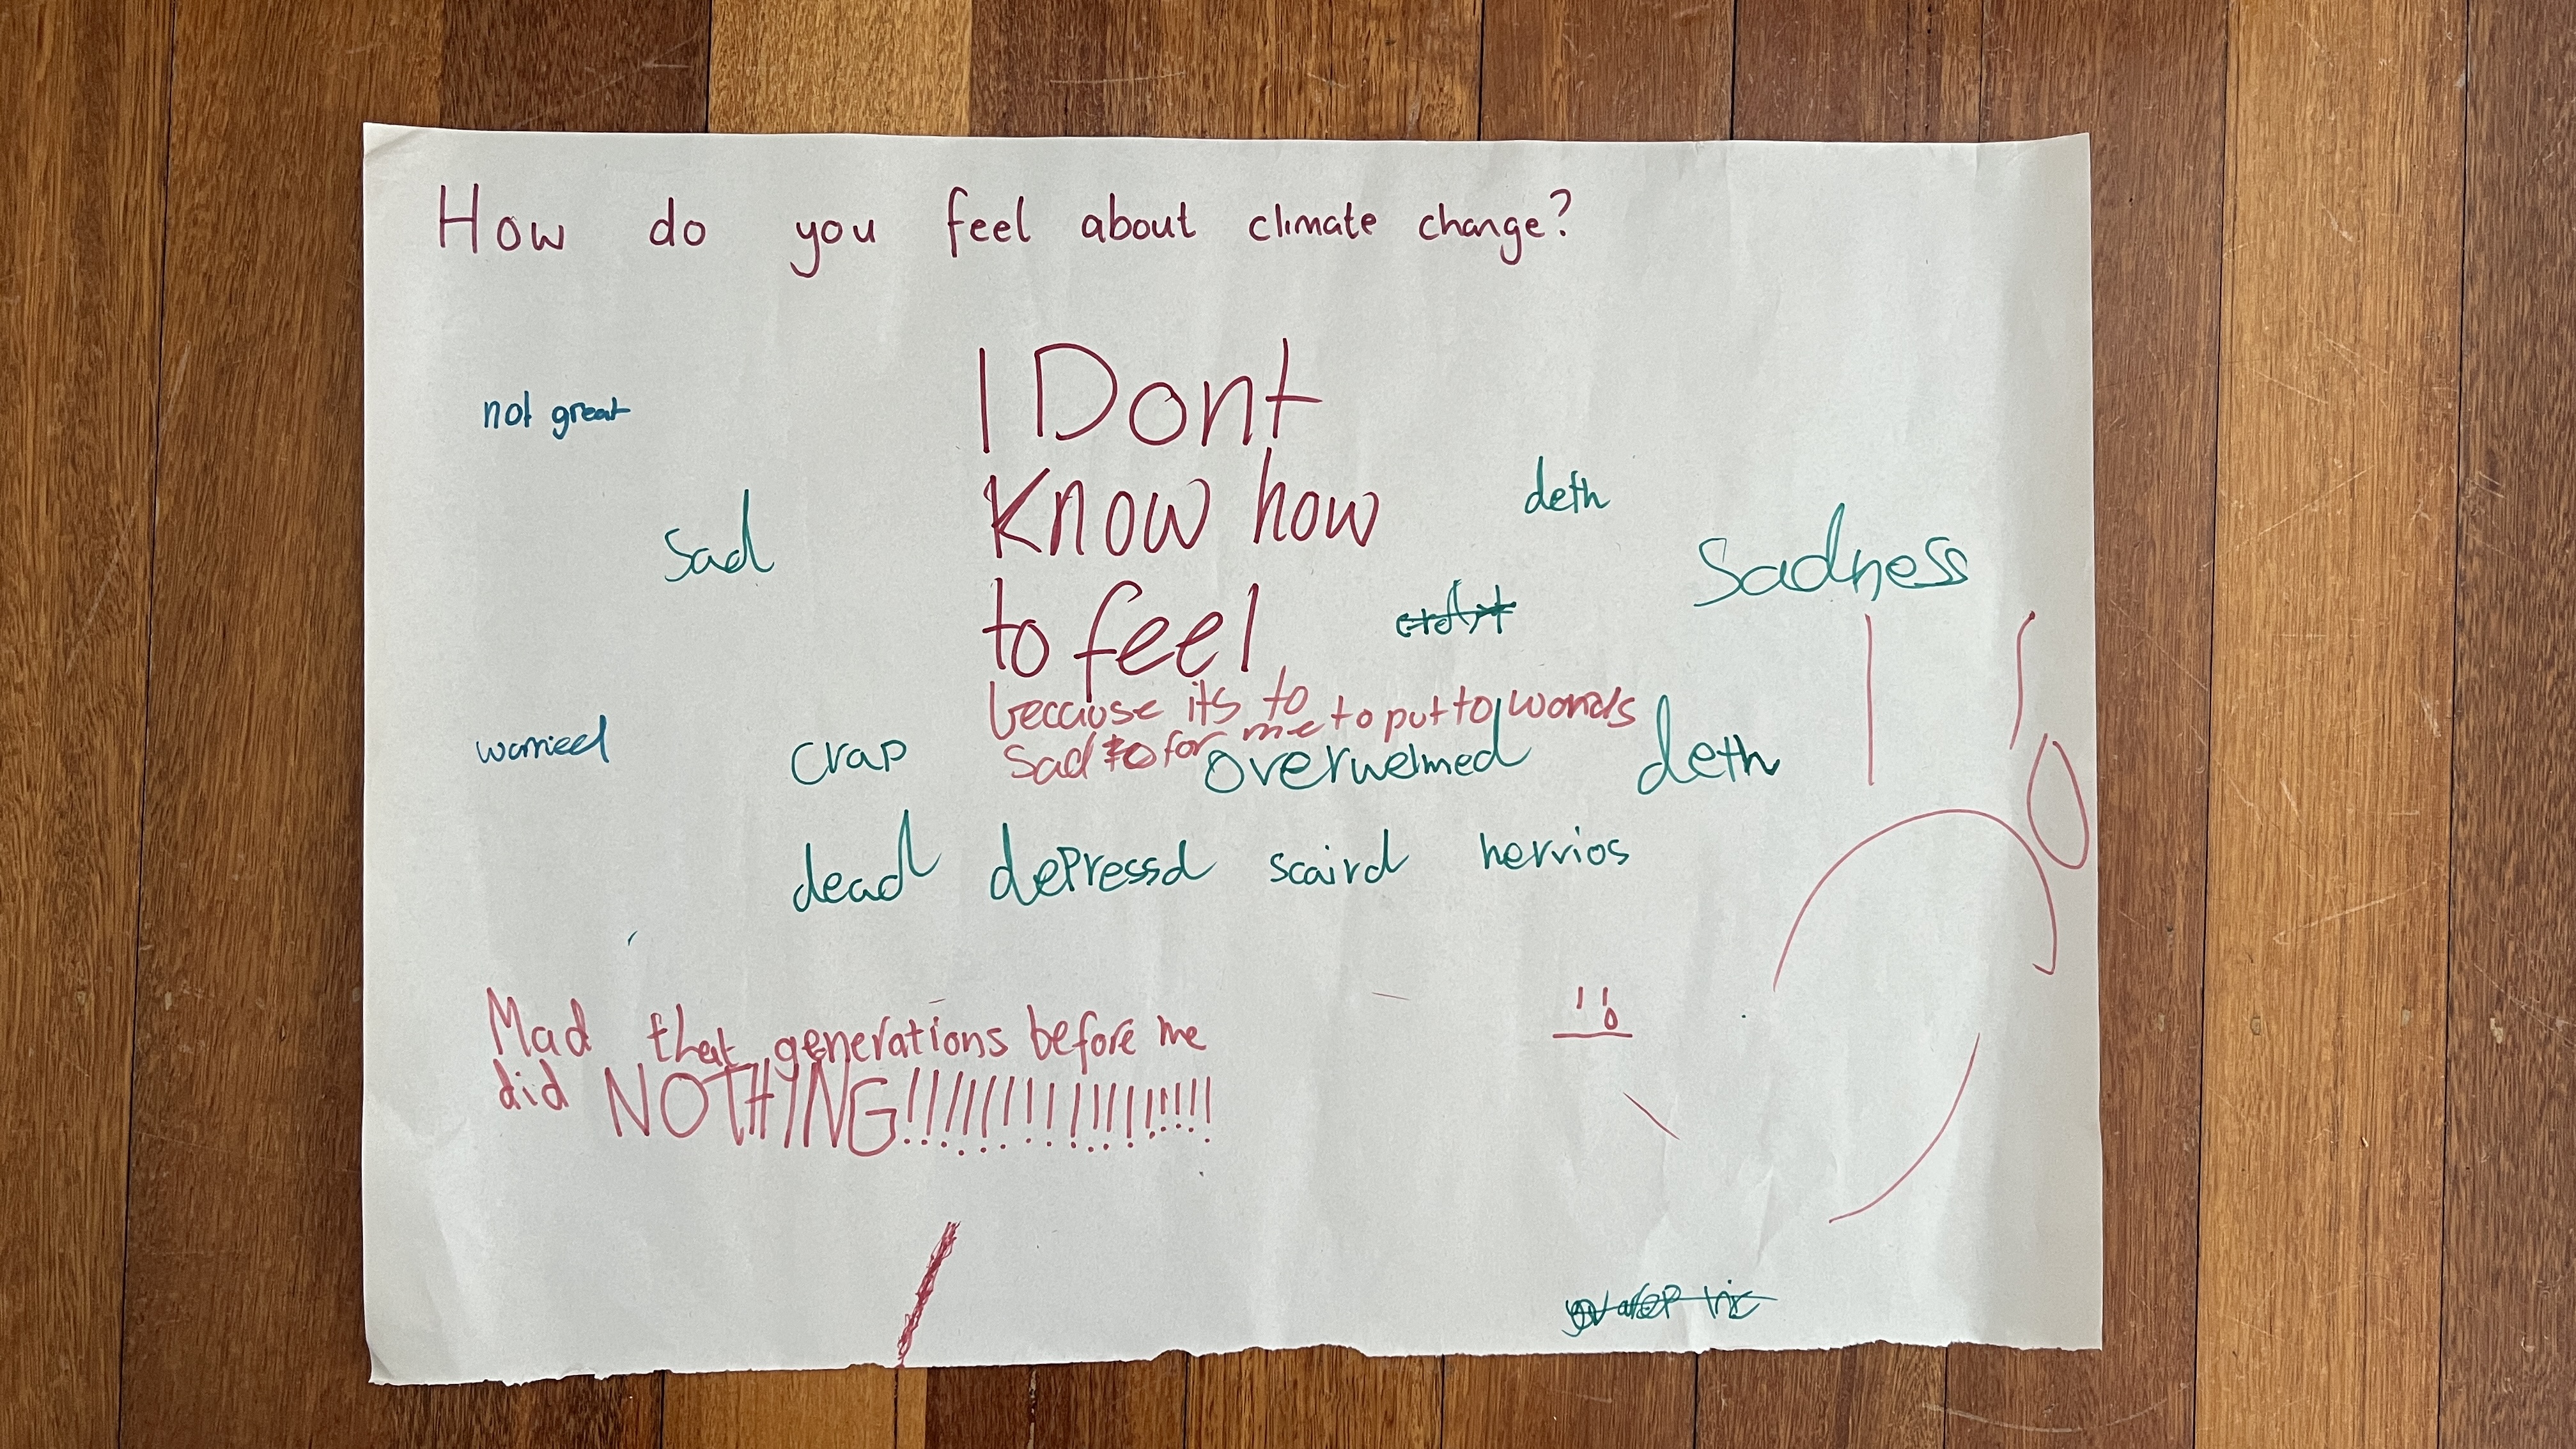 How do you feel about climate change?
not great
I Dont
know how
to feel
because its to
sad for me to put to words
deth
sad
Sadness
worried
crap
overwelmed
deth
dead depressd scaird nervios
Mad that generations before me
did NOTHING!!!!!!!!!!!!!!!!!!!